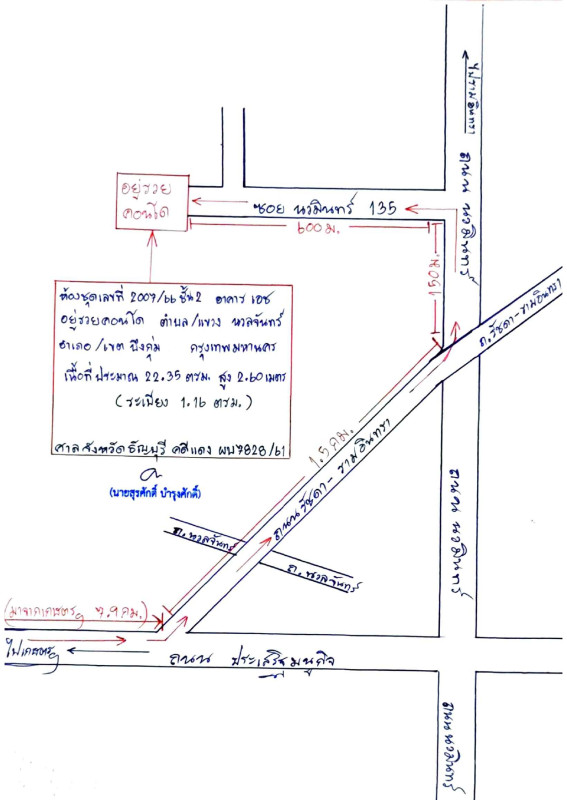 ไปรามอินทรา
ถนน นวมินทร์
อยู่รวย
คอนโด
ซอย นวมินทร์ 135
600 ม.
150 ม.
ถ.รัชดา-รามอินทรา
ห้องชุดเลขที่ 2007/66 ชั้น 2 อาคาร เอช
อยู่รวยคอนโด ตำบล/แขวง นวลจันทร์
อำเภอ/เขต บึงกุ่ม กรุงเทพมหานคร
เนื้อที่ประมาณ 22.35 ตรม. สูง 2.60 เมตร
(ระเบียง 1.16 ตรม.)
ศาลจังหวัดธัญบุรี คดีแดง ผบ7828/61
(นายสุรศักดิ์ บำรุงศักดิ์)
1.5 กม.
ถนน รัชดา-รามอินทรา
ถ.นวลจันทร์
ถ.นวลจันทร์
ถนน นวมินทร์
(มาจากเกษตรฯ 7.9 กม.)
ไปเกษตรฯ
ถนน ประเสริฐมนูกิจ
ถนน นวมินทร์